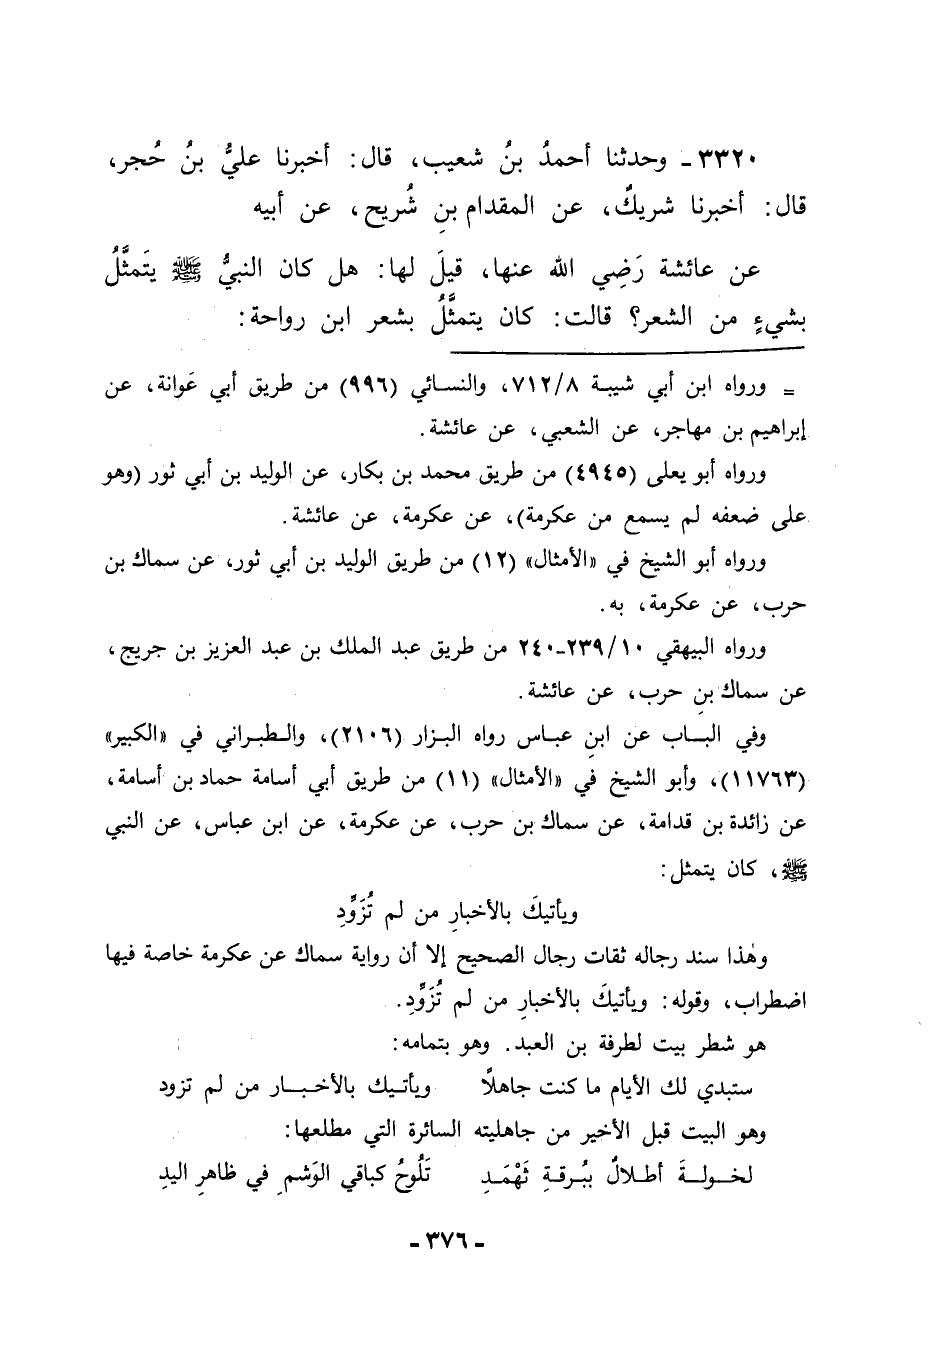 ٣٣٢٠ـ وحدثنا أحمدُ بنُ شعيب، قال: أخبرنا عليُّ بنُ حُجر،
قال: أخبرنا شريكٌ، عن المقدام بنِ شُريح، عن أبيه
عن عائشة رَضِي الله عنها، قيلَ لها: هل كان النبيُّ ﷺ يَتمثَّلُ
بشيءٍ من الشعر؟ قالت: كان يتمثَّلُ بشعر ابن رواحة:
= ورواه ابن أبي شيبة ٧١٢/٨، والنسائي (٩٩٦) من طريق أبي عَوانة، عن
إبراهيم بن مهاجر، عن الشعبي، عن عائشة.
ورواه أبو يعلى (٤٩٤٥) من طريق محمد بن بكار، عن الوليد بن أبي ثور (وهو
على ضعفه لم يسمع من عكرمة)، عن عكرمة، عن عائشة.
ورواه أبو الشيخ في «الأمثال» (١٢) من طريق الوليد بن أبي ثور، عن سماك بن
حرب، عن عكرمة، به.
ورواه البيهقي ٢٣٩/١٠-٢٤٠ من طريق عبد الملك بن عبد العزيز بن جريج،
عن سماك بنِ حرب، عن عائشة.
وفي الباب عن ابنِ عباس رواه البزار (٢١٠٦)، والطبراني في «الكبير»
(١١٧٦٣)، وأبو الشيخ في «الأمثال» (١١) من طريق أبي أسامة حماد بن أسامة،
عن زائدة بن قدامة، عن سماك بن حرب، عن عكرمة، عن ابن عباس، عن النبي
ﷺ، كان يتمثل:
ويأتيكَ بالأخبارِ من لم تُزَوِّدِ
وهٰذا سند رجاله ثقات رجال الصحيح إلا أن رواية سماك عن عكرمة خاصة فيها
اضطراب، وقوله: ويأتيكَ بالأخبارِ من لم تُزَوِّدِ.
هو شطر بيت لطرفة بن العبد. وهو بتمامه:
ستبدي لك الأيام ما كنت جاهلًا ويأتيك بالأخبار من لم تزود
وهو البيت قبل الأخير من جاهليته السائرة التي مطلعها:
لخولةَ أطلالٌ ببُرقةِ ثَهْمَدِ تَلُوحُ كباقي الوَشمِ في ظاهرِ اليدِ
ـ ٣٧٦ ـ